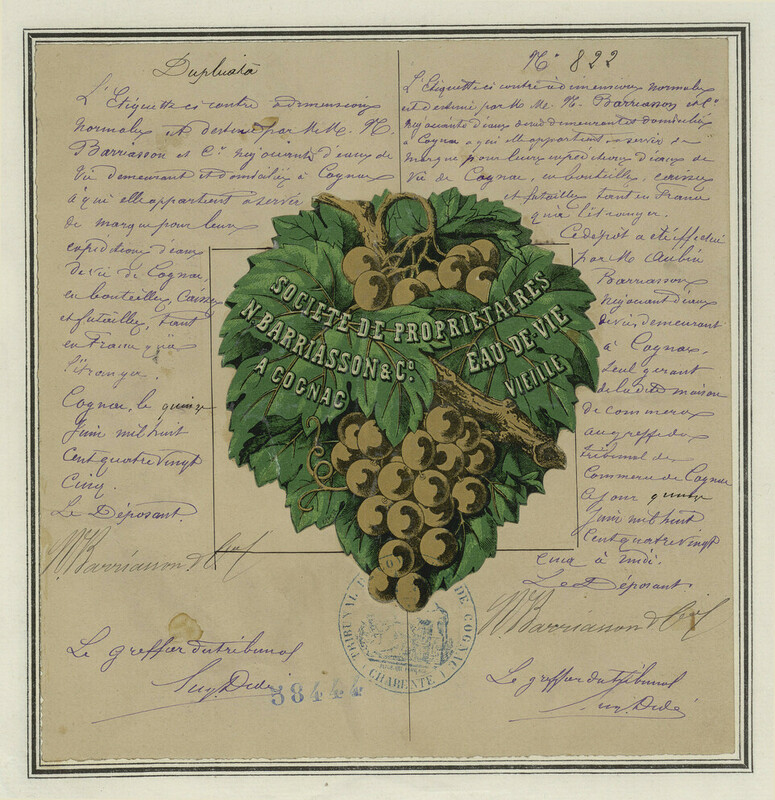 Duplicata
L'Etiquette ci contre à dimensions
normales est destinée par M.M. N.
Barriasson et Cº négociants d'eaux de
Vie demeurant et domiciliés à Cognac
à qui elle appartient à servir
de marque pour leurs
expéditions d'eaux
de vie de Cognac,
en bouteilles, Caisses
et futailles, tant
en France qu'à
l'étranger.
Cognac, le quinze
Juin mil huit
Cent quatre vingt
Cinq.
Le Déposant.
N Barriasson & Cie
Le greffier du tribunal
Nº 822
L'Etiquette ci contre à dimensions normales
est destinée par M.M. N. Barriasson et Cº
négociants d'eaux de vie demeurant et domiciliés
à Cognac à qui elle appartient à servir de
marque pour leurs expéditions d'eaux de
vie de Cognac, en bouteilles, caisses
et futailles tant en France
qu'à l'étranger.
Ce dépôt a été effectué
par M Aubin
Barriasson,
négociant d'eaux
de vie, demeurant
à Cognac,
seul gérant
de la dite maison
de commerce
au greffe du
tribunal de
Commerce de Cognac
ce jour quinze
Juin mil huit
Cent quatre vingt
cinq à midi.
Le Déposant
N Barriasson & Cie
Le greffier du tribunal
SOCIÉTÉ DE PROPRIÉTAIRES
N. BARRIASSON & Cº.
A COGNAC
EAU-DE-VIE
VIEILLE
TRIBUNAL DE COGNAC
CHARENTE
38444